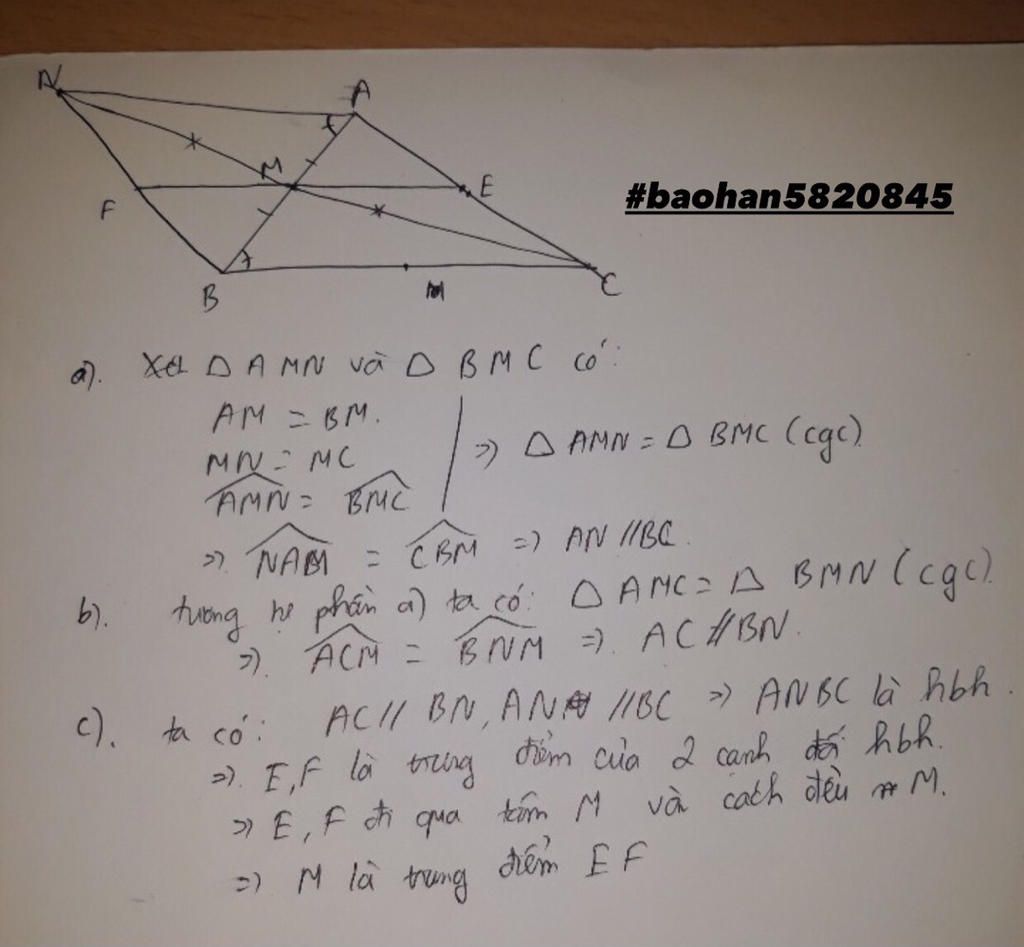 N
A
M
E
#baohan5820845
F
B
M
C
a). Xét △ AMN và △ BMC có:
AM = BM.
MN = MC
⇒ △ AMN = △ BMC (cgc)
\widehat{AMN} = \widehat{BMC}
⇒ \widehat{NAM} = \widehat{CBM} ⇒ AN // BC.
b). tương tự phần a) ta có: △ AMC = △ BMN (cgc).
⇒ \widehat{ACM} = \widehat{BNM} ⇒ AC // BN.
c). ta có: AC // BN, AN // BC ⇒ ANBC là hbh.
⇒ E, F là trung điểm của 2 cạnh đối hbh.
⇒ E, F đi qua tâm M và cách đều M.
⇒ M là trung điểm EF